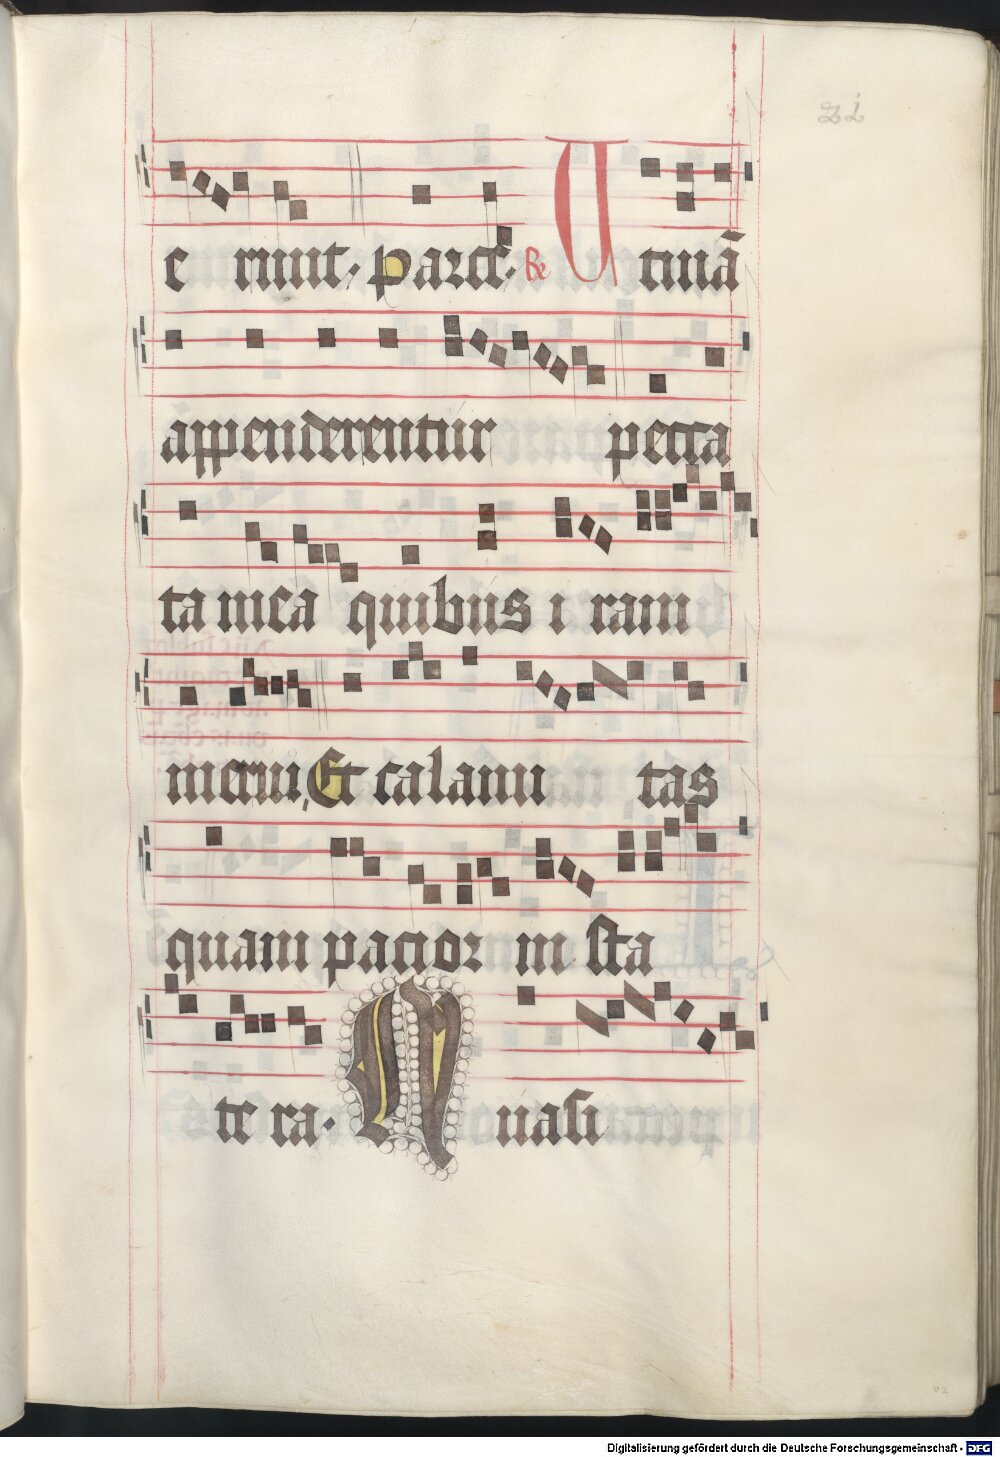 21
e runt. parce. Re Utinā
appenderentur pecca
ta mea quibus i ram
merui, Et calami tas
quam pacior in sta
te ra. Quasi
Digitalisierung gefördert durch die Deutsche Forschungsgemeinschaft - DFG